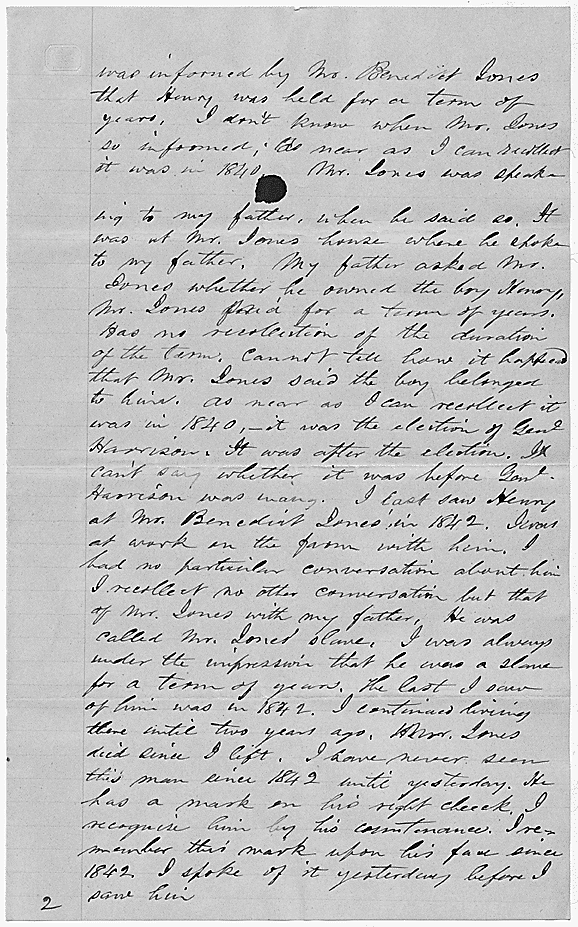 was informed by Mr. Benedict Jones
that Henry was held for a term of
years. I don't know when Mr. Jones
so informed; As near as I can recollect
it was in 1840. Mr. Jones was speak-
ing to my father, when he said so. It
was at Mr. Jones house where he spoke
to my father. My father asked Mr.
Jones whether he owned the boy Henry,
Mr. Jones said for a term of years.
Has no recollection of the duration
of the term. Cannot tell how it happened
that Mr. Jones said the boy belonged
to him. As near as I can recollect it
was in 1840, - it was the election of Genl
Harrison. It was after the election. I
can't say whether it was before Genl.
Harrison was inaug. I last saw Henry
at Mr. Benedict Jones, in 1842. I was
at work on the farm with him. I
had no particular conversation about him
I recollect no other conversation but that
of Mr. Jones with my father. He was
called Mr. Jones' slave. I was always
under the impression that he was a slave
for a term of years. The last I saw
of him was in 1842. I continued living
there until two years ago. Mr. Jones
died since I left. I have never seen
this man since 1842 until yesterday. He
has a mark on his right cheek. I
recognise him by his countenance. I re-
member this mark upon his face since
1842. I spoke of it yesterday before I
saw him
2